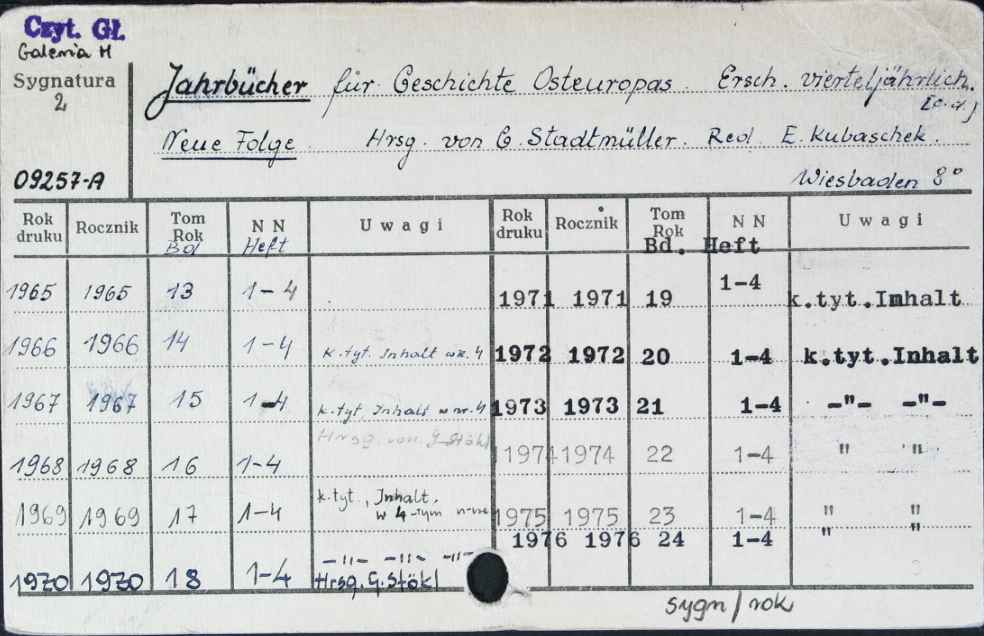 Czyt. Gł.
Galeria H
Sygnatura
2
09257-A
Jahrbücher für Geschichte Osteuropas. Ersch. vierteljährlich.
Neue Folge Hrsg. von G. Stadtmüller. Red. E. Kubaschek.
Wiesbaden 8°
Rok druku Rocznik Tom Rok N N U w a g i Rok druku Rocznik Tom Rok N N U w a g i
Bd Heft Bd. Heft
1965 1965 13 1-4 1971 1971 19 1-4 k.tyt.Inhalt
1966 1966 14 1-4 k.tyt. Inhalt w nr. 4 1972 1972 20 1-4 k.tyt.Inhalt
1967 1967 15 1-4 k.tyt. Inhalt w nr. 4 1973 1973 21 1-4 -"- -"-
Hrsg. von G. Stökl
1968 1968 16 1-4 1974 1974 22 1-4 " "
1969 1969 17 1-4 k.tyt., Inhalt. w 4-tym n-rze 1975 1975 23 1-4 " "
1976 1976 24 1-4 " "
1970 1970 18 1-4 -"- -"- -"-
Hrsg. G. Stökl
sygn/rok